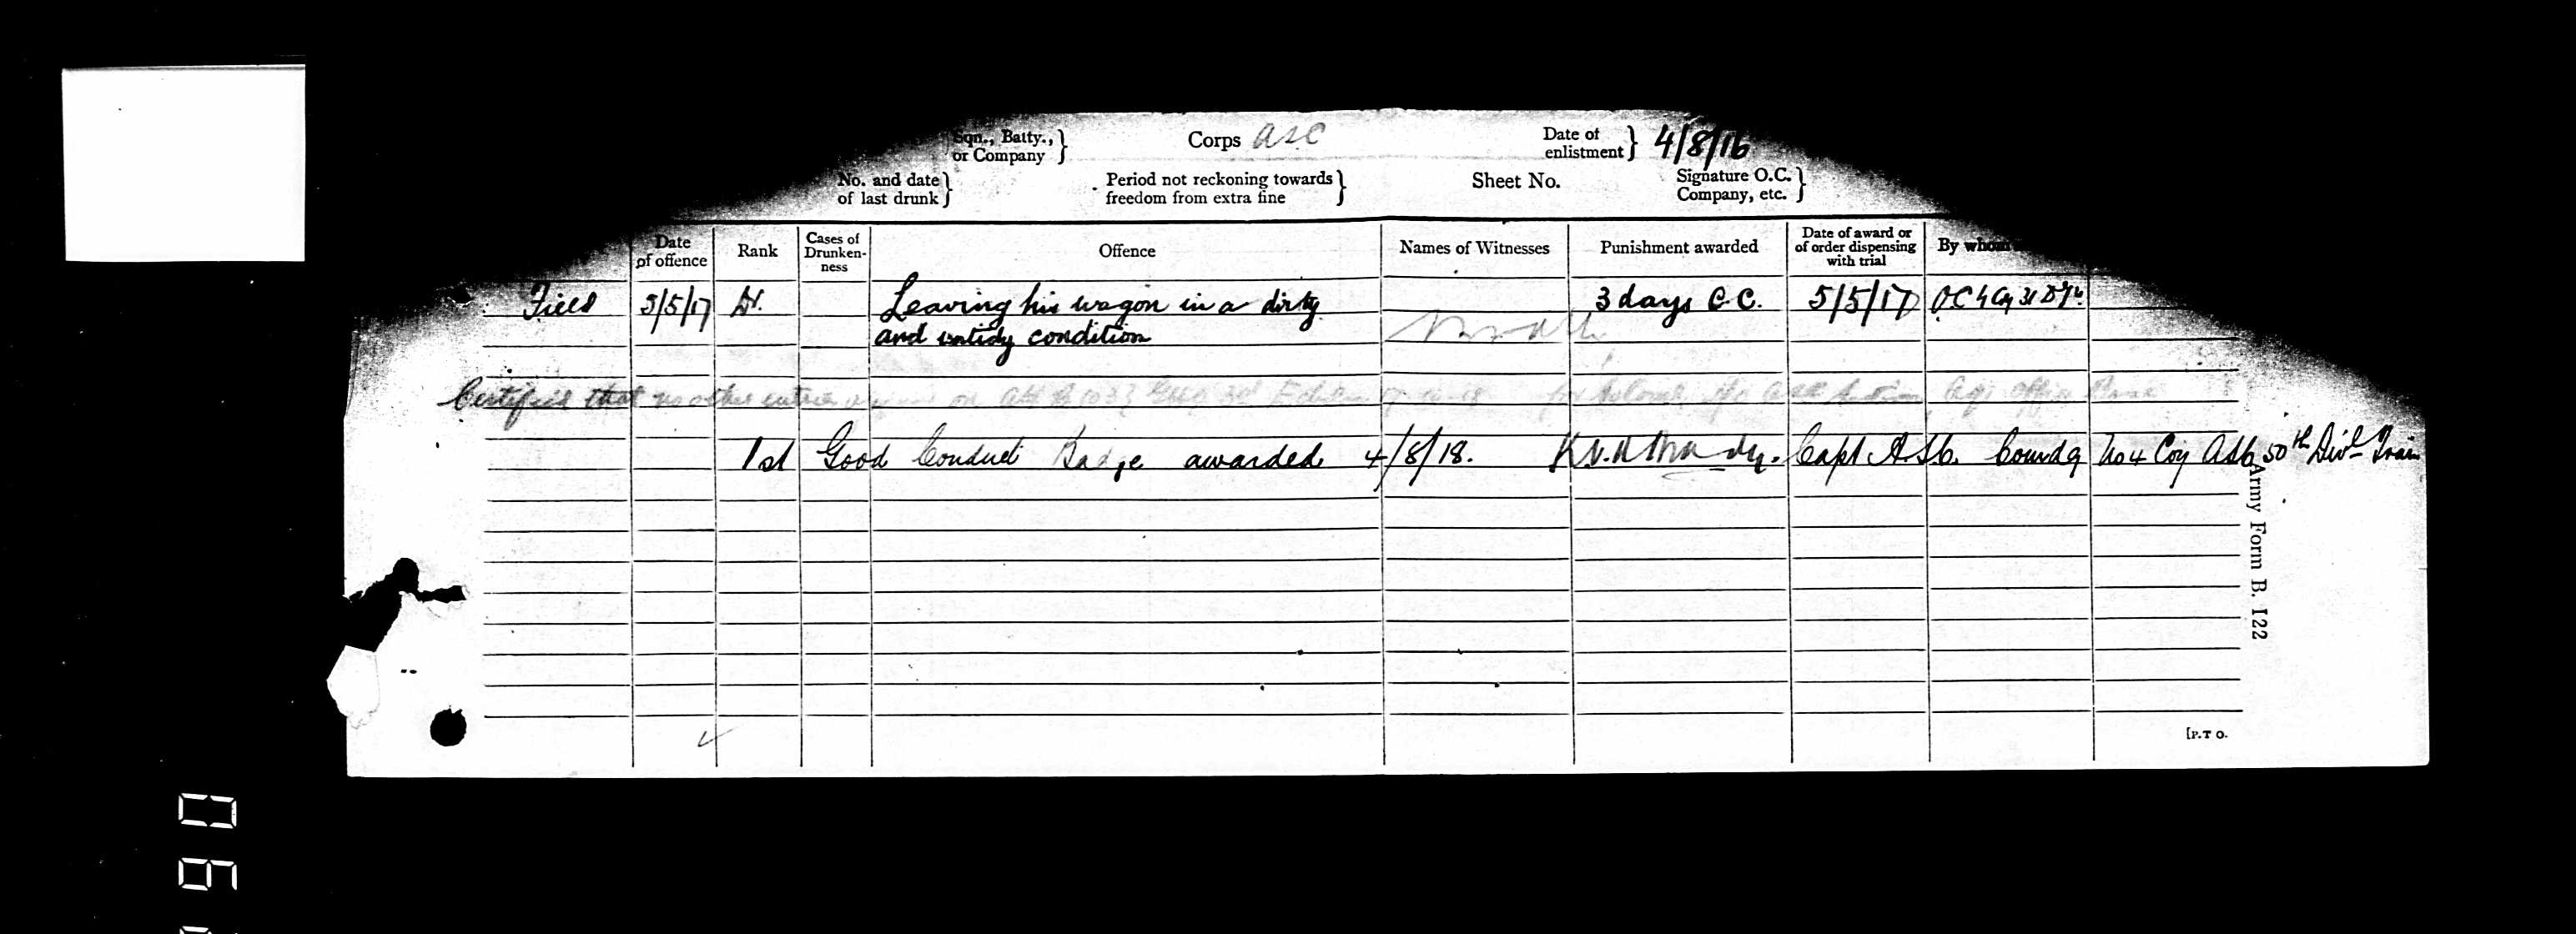 Sqn., Batty., or Company } Corps ASC Date of enlistment } 4/8/16
No. and date of last drunk } Period not reckoning towards freedom from extra fine } Sheet No. Signature O.C. Company, etc. }
Date of offence Rank Cases of Drunkenness Offence Names of Witnesses Punishment awarded Date of award or of order dispensing with trial By whom
Field 5/5/17 Dr. Leaving his wagon in a dirty 3 days C.C. 5/5/17 OC 4 Coy 31 D.T.
and untidy condition
Certified that no other entries
1st Good Conduct Badge awarded 4/8/18. Capt A.S.C. Comdg No 4 Coy ASC 50th Divl Train
Army Form B. 122
[P.T O.